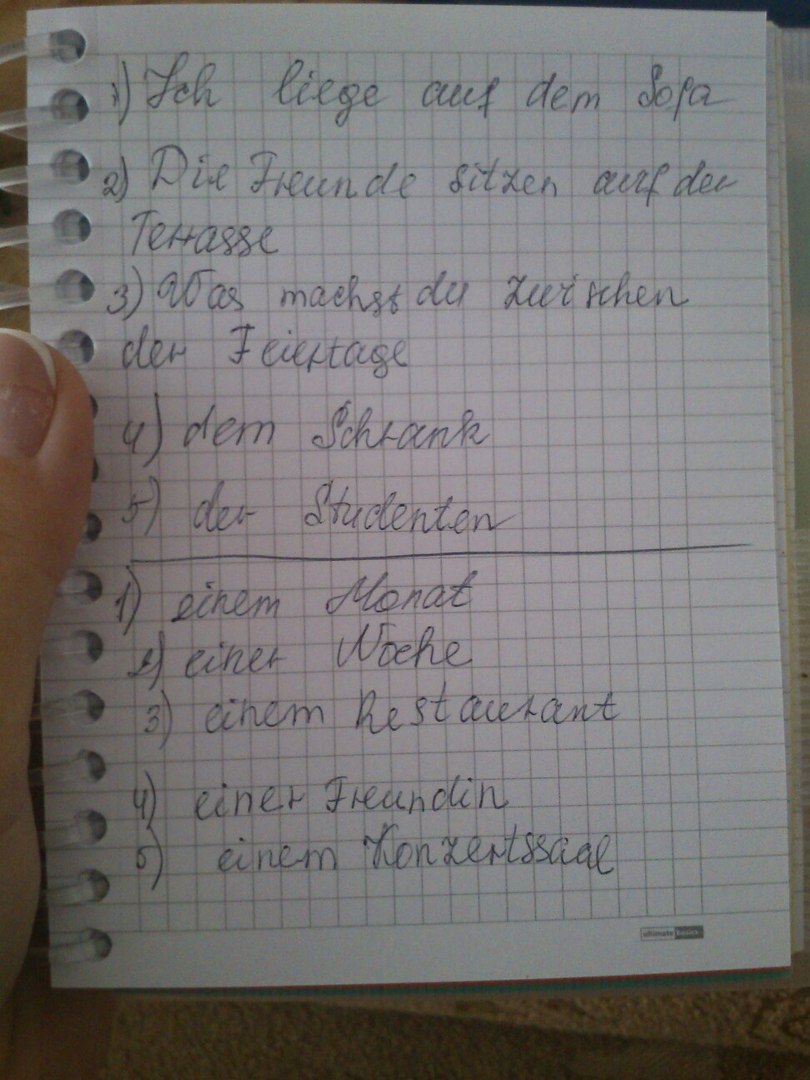 1) Ich liege auf dem Sofa
2) Die Freunde sitzen auf der
Terrasse
3) Was machst du zwischen
der Feiertage
4) dem Schrank
5) der Studenten
1) einem Monat
2) einer Woche
3) einem Restaurant
4) einer Freundin
5) einem Konzertssaal
ultimate basics